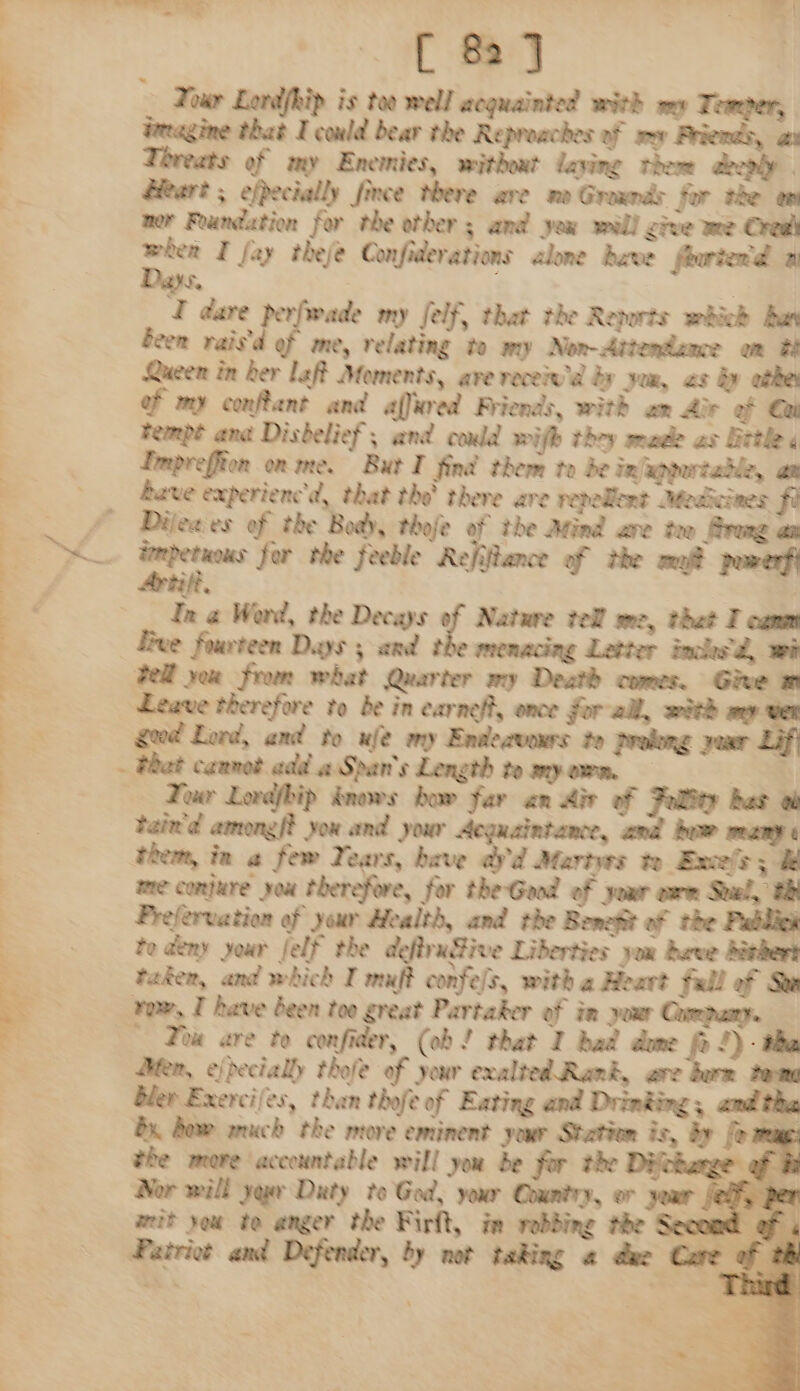 [ 82 ]
Your Lordſhip is too well acquainted with my Temper,
imagine that I could bear the Reproaches of my Friends, an
Threats of my Enemies, without laying them deeply
Heart ; eſpecially ſince there are no Grounds for the on
nor Foundation for the other ; and you will give me Credi
when I ſay theſe Conſiderations alone have ſhorten'd m
Days.
I dare perſwade my ſelf, that the Reports which hav
been rais'd of me, relating to my Non-Attendance on th
Queen in her laſt Moments, are receiv'd by you, as by other
of my conſtant and aſſured Friends, with an Air of Con
tempt and Disbelief ; and could wiſh they made as little
Impreſſion on me. But I find them to be inſupportable, an
have experienc'd, that tho' there are repellent Medicines fo
Diſeaſes of the Body, thoſe of the Mind are too ſtrong an
impetuous for the feeble Reſiſtance of the moſt powerf
Artiſt.
In a Word, the Decays of Nature tell me, that I cann
live fourteen Days ; and the menacing Letter inclos'd, wi
tell you from what Quarter my Death comes. Give m
Leave therefore to be in earneſt, once for all, with my ver
good Lord, and to uſe my Endeavours to prolong your Lif
that cannot add a Span's Length to my own.
Your Lordſhip knows how far an Air of Jollity has ob
tain'd amongſt you and your Acquaintance, and how many
them, in a few Years, have dy'd Martyrs to Exceſs ; le
me conjure you therefore, for the Good of your own Soul, th
Preſervation of your Health, and the Benefit of the Publick
to deny your ſelf the deſtructive Liberties you have hithert
taken, and which I muſt confeſs, with a Heart full of Sor
row, I have been too great Partaker of in your Company.
You are to conſider, (oh ! that I had done ſo !) tha
Men, eſpecially thoſe of your exalted Rank, are born to no
bler Exerciſes, than thoſe of Eating and Drinking ; and tha
by how much the more eminent your Station is, by ſo muc
the more accountable will you be for the Diſcharge of it
Nor will your Duty to God, your Country, or your ſelf, per
mit you to anger the Firſt, in robbing the Second of
Patriot and Defender, by not taking a due Care of th
Third